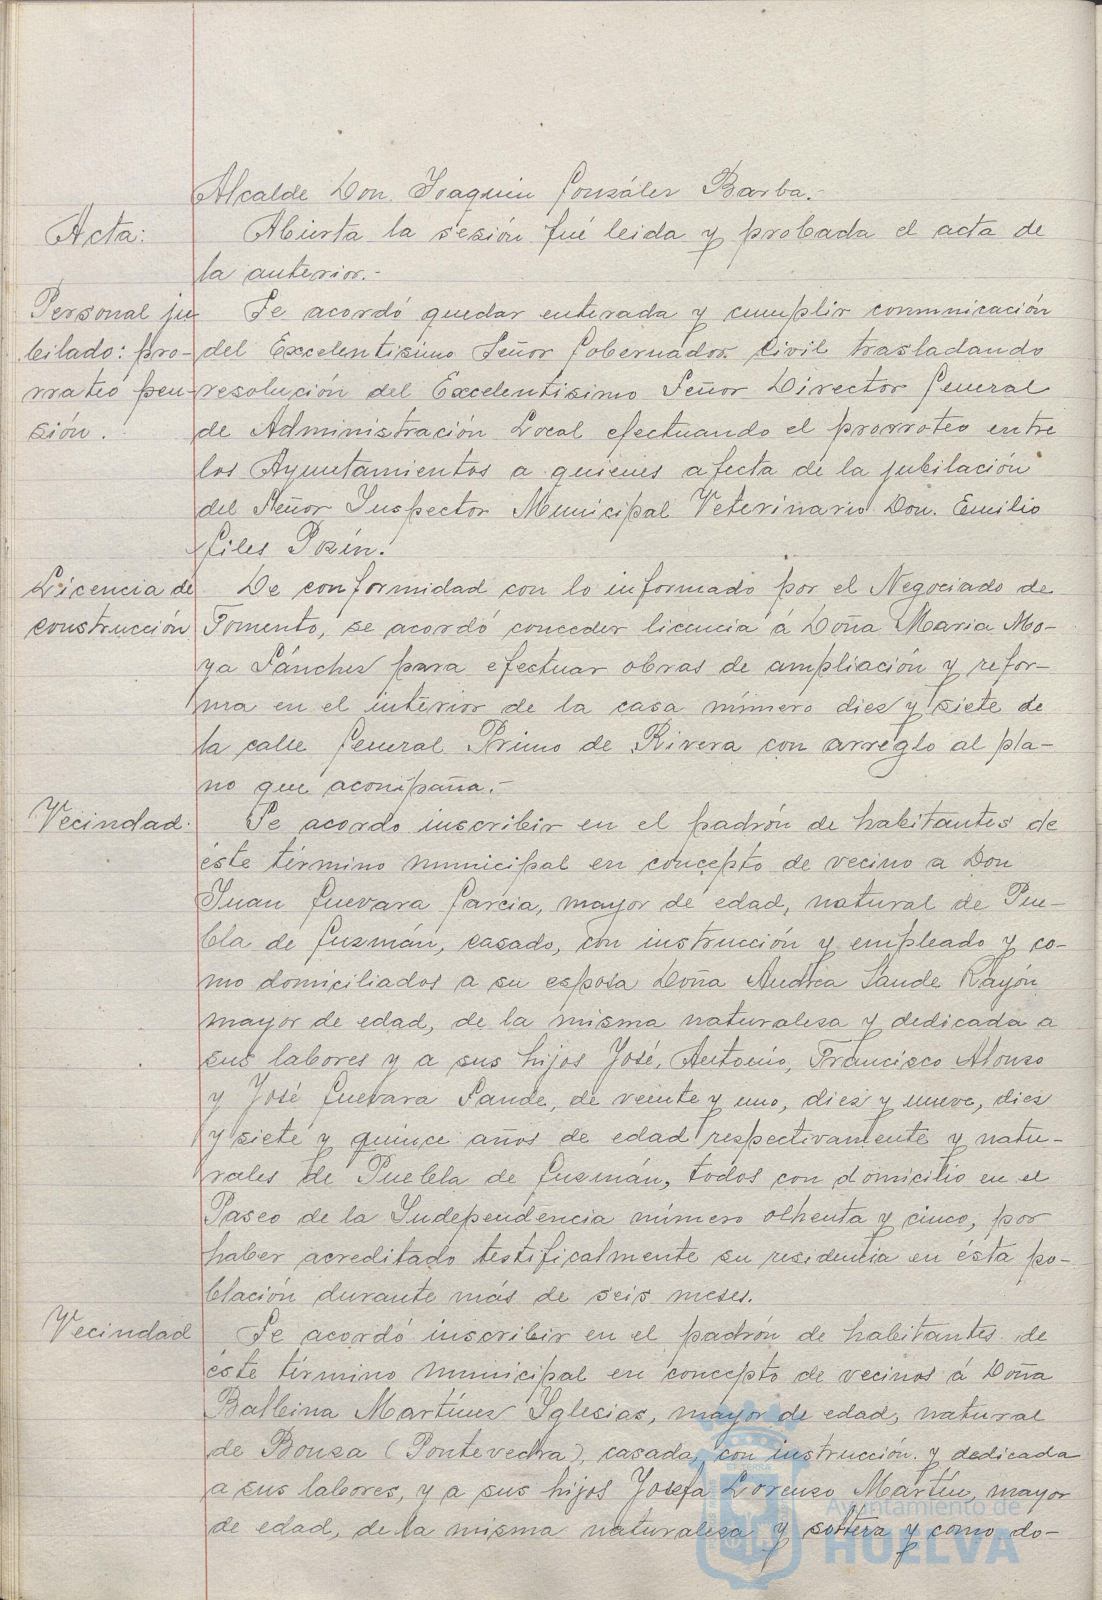 Alcalde Don Joaquin González Barba.-
Acta: Abierta la sesión fué leida y probada el acta de
la anterior.-
Personal ju- Se acordó quedar enterada y cumplir comunicación
bilado: pro- del Excelentisimo Señor Gobernador Civil trasladando
rrateo pen- resolución del Excelentisimo Señor Director General
sión. de Administración Local efectuando el prorroteo entre
los Ayuntamientos a quienes afecta de la jubilación
del Señor Inspector Municipal Veterinario Don. Emilio
Giles
Licencia de De conformidad con lo informado por el Negociado de
construcción Fomento, se acordó conceder licencia á Doña Maria Mo-
ya Sánchez para efectuar obras de ampliación y refor-
ma en el interior de la casa número diez y siete de
la calle General Primo de Rivera con arreglo al pla-
no que acompaña.-
Vecindad. Se acordo inscribir en el padrón de habitantes de
éste término municipal en concepto de vecino a Don
Juan Guevara Garcia, mayor de edad, natural de Pue-
bla de Guzmán, casado, con instrucción y empleado y co-
mo domiciliados a su esposa Doña Andrea Sande Rayón
mayor de edad, de la misma naturaleza y dedicada a
sus labores y a sus hijos José, Antonio, Francisco Alonso
y José Guevara Sande, de veinte y uno, diez y nueve, diez
y siete y quince años de edad respectivamente y natu-
rales de Puebla de Guzmán, todos con domicilio en el
Paseo de la Independencia número ochenta y cinco, por
haber acreditado testificalmente su residencia en ésta po-
blación durante más de seis meses.
Vecindad Se acordó inscribir en el padrón de habitantes de
éste término municipal en concepto de vecinos á Doña
Balbina Martinez Iglesias, mayor de edad, natural
de Bouza (Pontevedra), casada, con instrucción y dedicada
a sus labores, y a sus hijos Josefa Lorenzo Martín, mayor
de edad, de la misma naturaleza y soltera y como do-
Ayuntamiento de
HUELVA